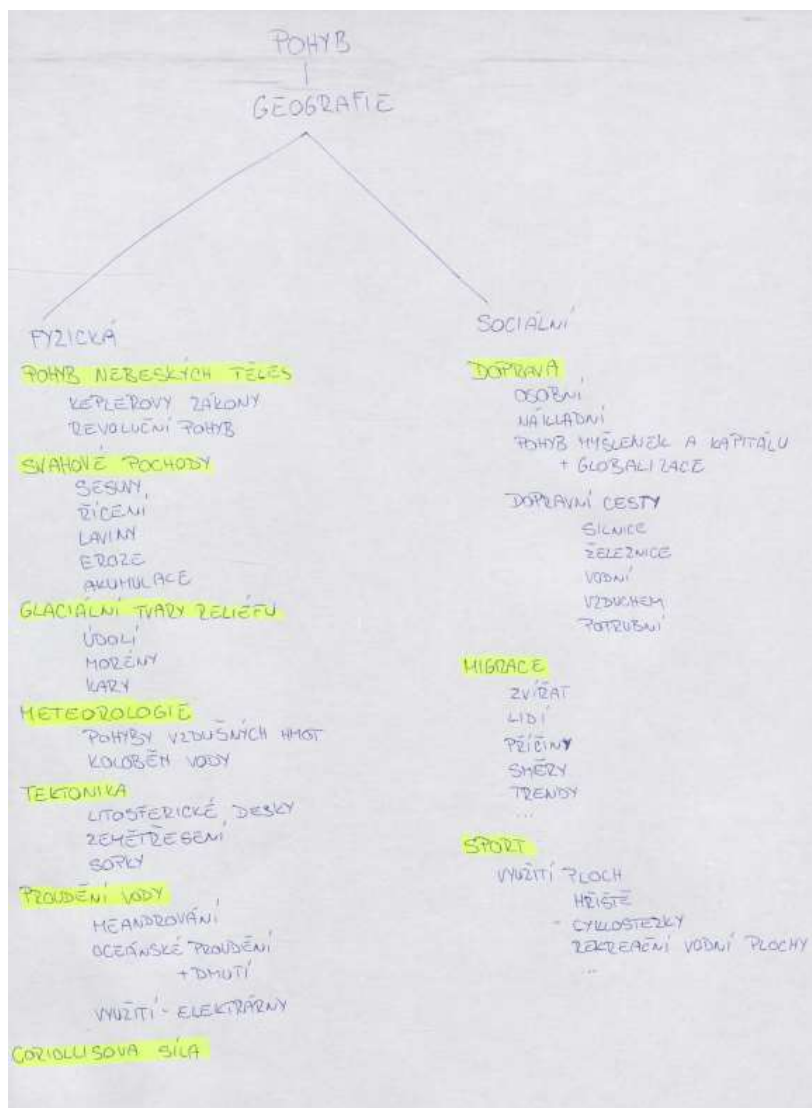 POHYB
GEOGRAFIE
FYZICKÁ
POHYB NEBESKÝCH TĚLES
KEPLEROVY ZÁKONY
REVOLUČNÍ POHYB
SVAHOVÉ POCHODY
SESUVY
ŘÍCENÍ
LAVINY
EROZE
AKUMULACE
GLACIÁLNÍ TVARY RELIÉFU
ÚDOLÍ
MORÉNY
KARY
METEOROLOGIE
POHYBY VZDUŠNÝCH HMOT
KOLOBĚH VODY
TEKTONIKA
LITOSFERICKÉ DESKY
ZEMĚTŘESENÍ
SOPKY
PROUDĚNÍ VODY
MEANDROVÁNÍ
OCEÁNSKÉ PROUDĚNÍ
+ DMUTÍ
VYUŽITÍ - ELEKTRÁRNY
CORIOLLISOVA SÍLA
SOCIÁLNÍ
DOPRAVA
OSOBNÍ
NÁKLADNÍ
POHYB MYŠLENEK A KAPITÁLU
+ GLOBALIZACE
DOPRAVNÍ CESTY
SILNICE
ŽELEZNICE
VODNÍ
VZDUCHEM
POTRUBNÍ
MIGRACE
ZVÍŘAT
LIDÍ
PŘÍČINY
SMĚRY
TRENDY
...
SPORT
VYUŽITÍ PLOCH
HŘIŠTĚ
- CYKLOSTEZKY
REKREAČNÍ VODNÍ PLOCHY
...